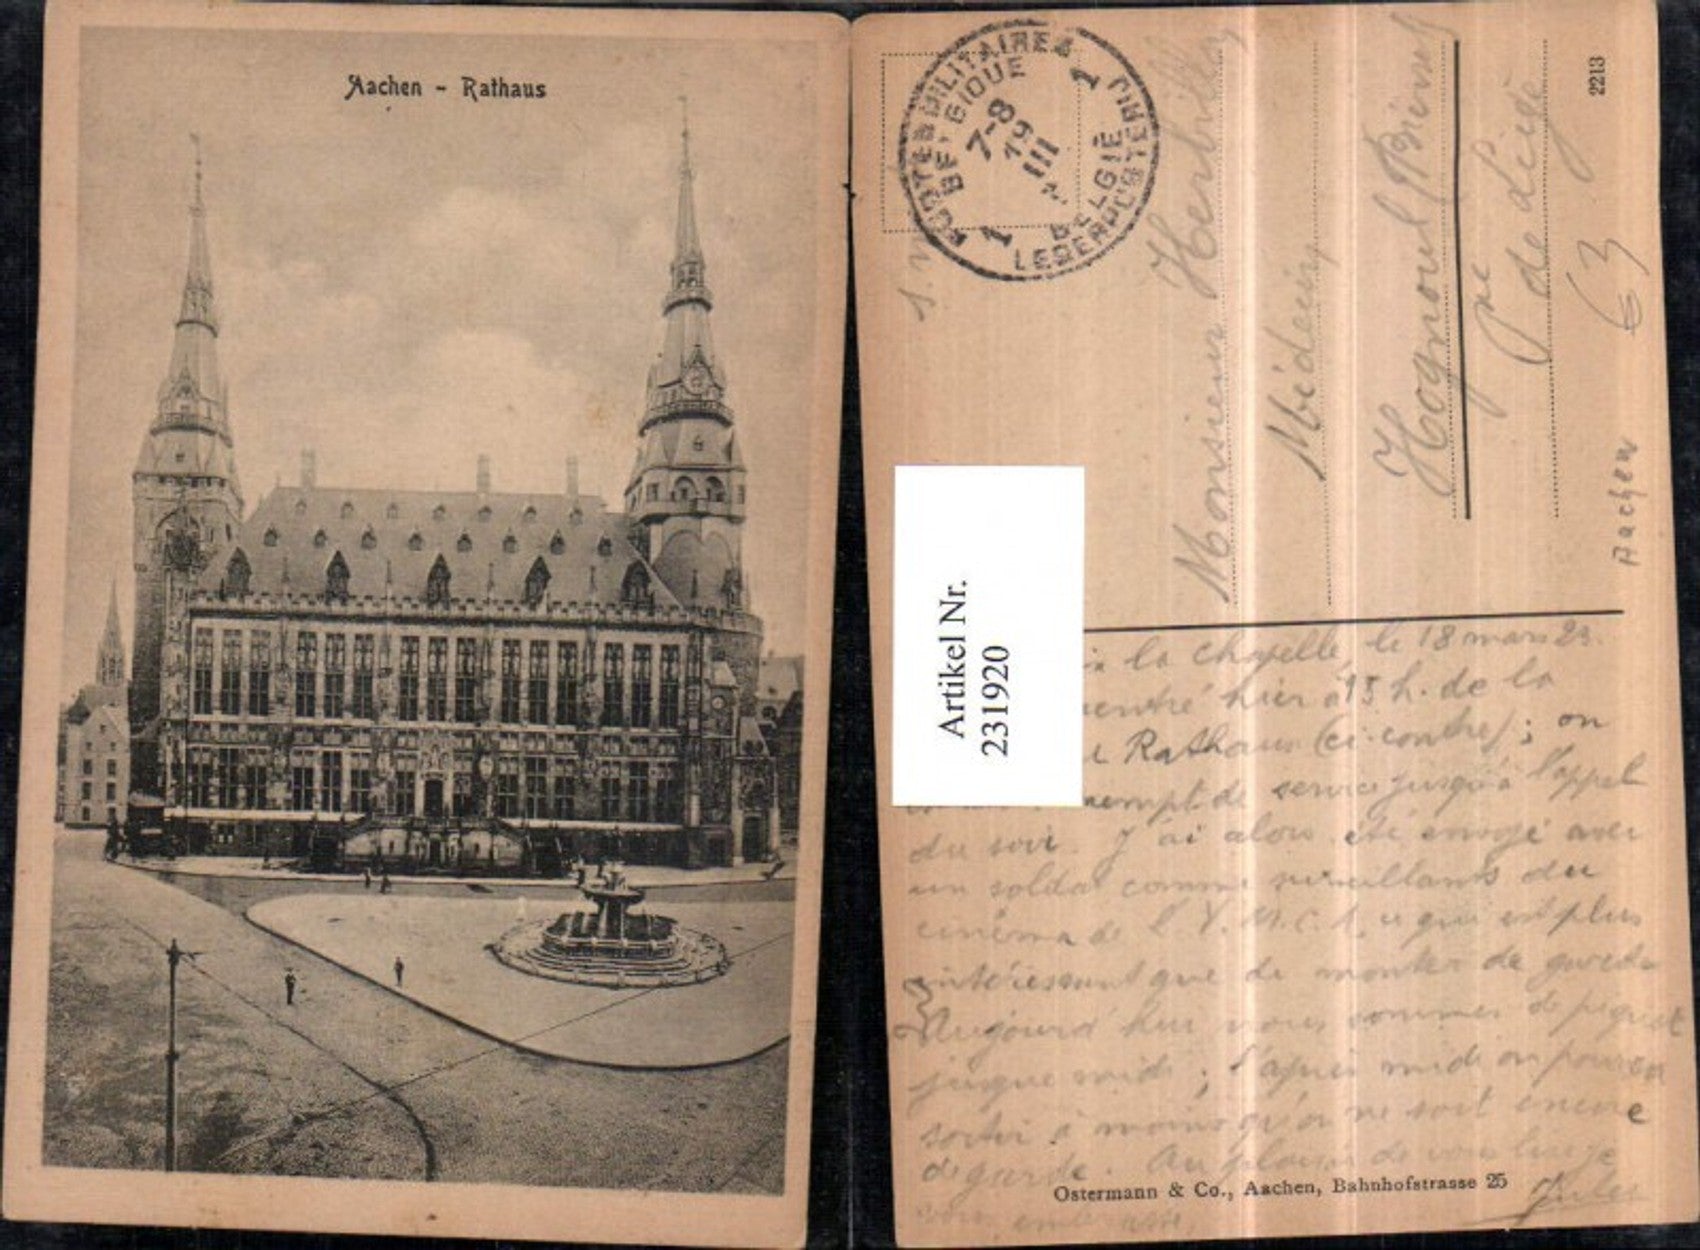 Aachen - Rathaus
POSTES MILITAIRES
BELGIQUE
1
7-8
19
III
1
BELGIË
LEGERPOSTERIJ
S. M.
Monsieur Herbillon
Médecin
Hognoul (Bierset
Pce de Liége
2213
63
Aachen
Artikel Nr.
231920
la Chapelle, le 18 mars 23.
rentré hier à 15 h. de la
Rathaus (ci-contre); on
exempt de service jusqu'à l'appel
du soir. J'ai alors été envoyé avec
un soldat comme surveillants du
cinéma de l'Y.M.C.A, ce qui est plus
intéressant que de monter de garde.
Aujourd'hui nous sommes de piquet
jusque midi; l'après midi on pourra
sortir à moins qu'on ne soit encore
de garde. Au plaisir de vous lire je
vous embrasse,
Jules
Ostermann & Co., Aachen, Bahnhofstrasse 25